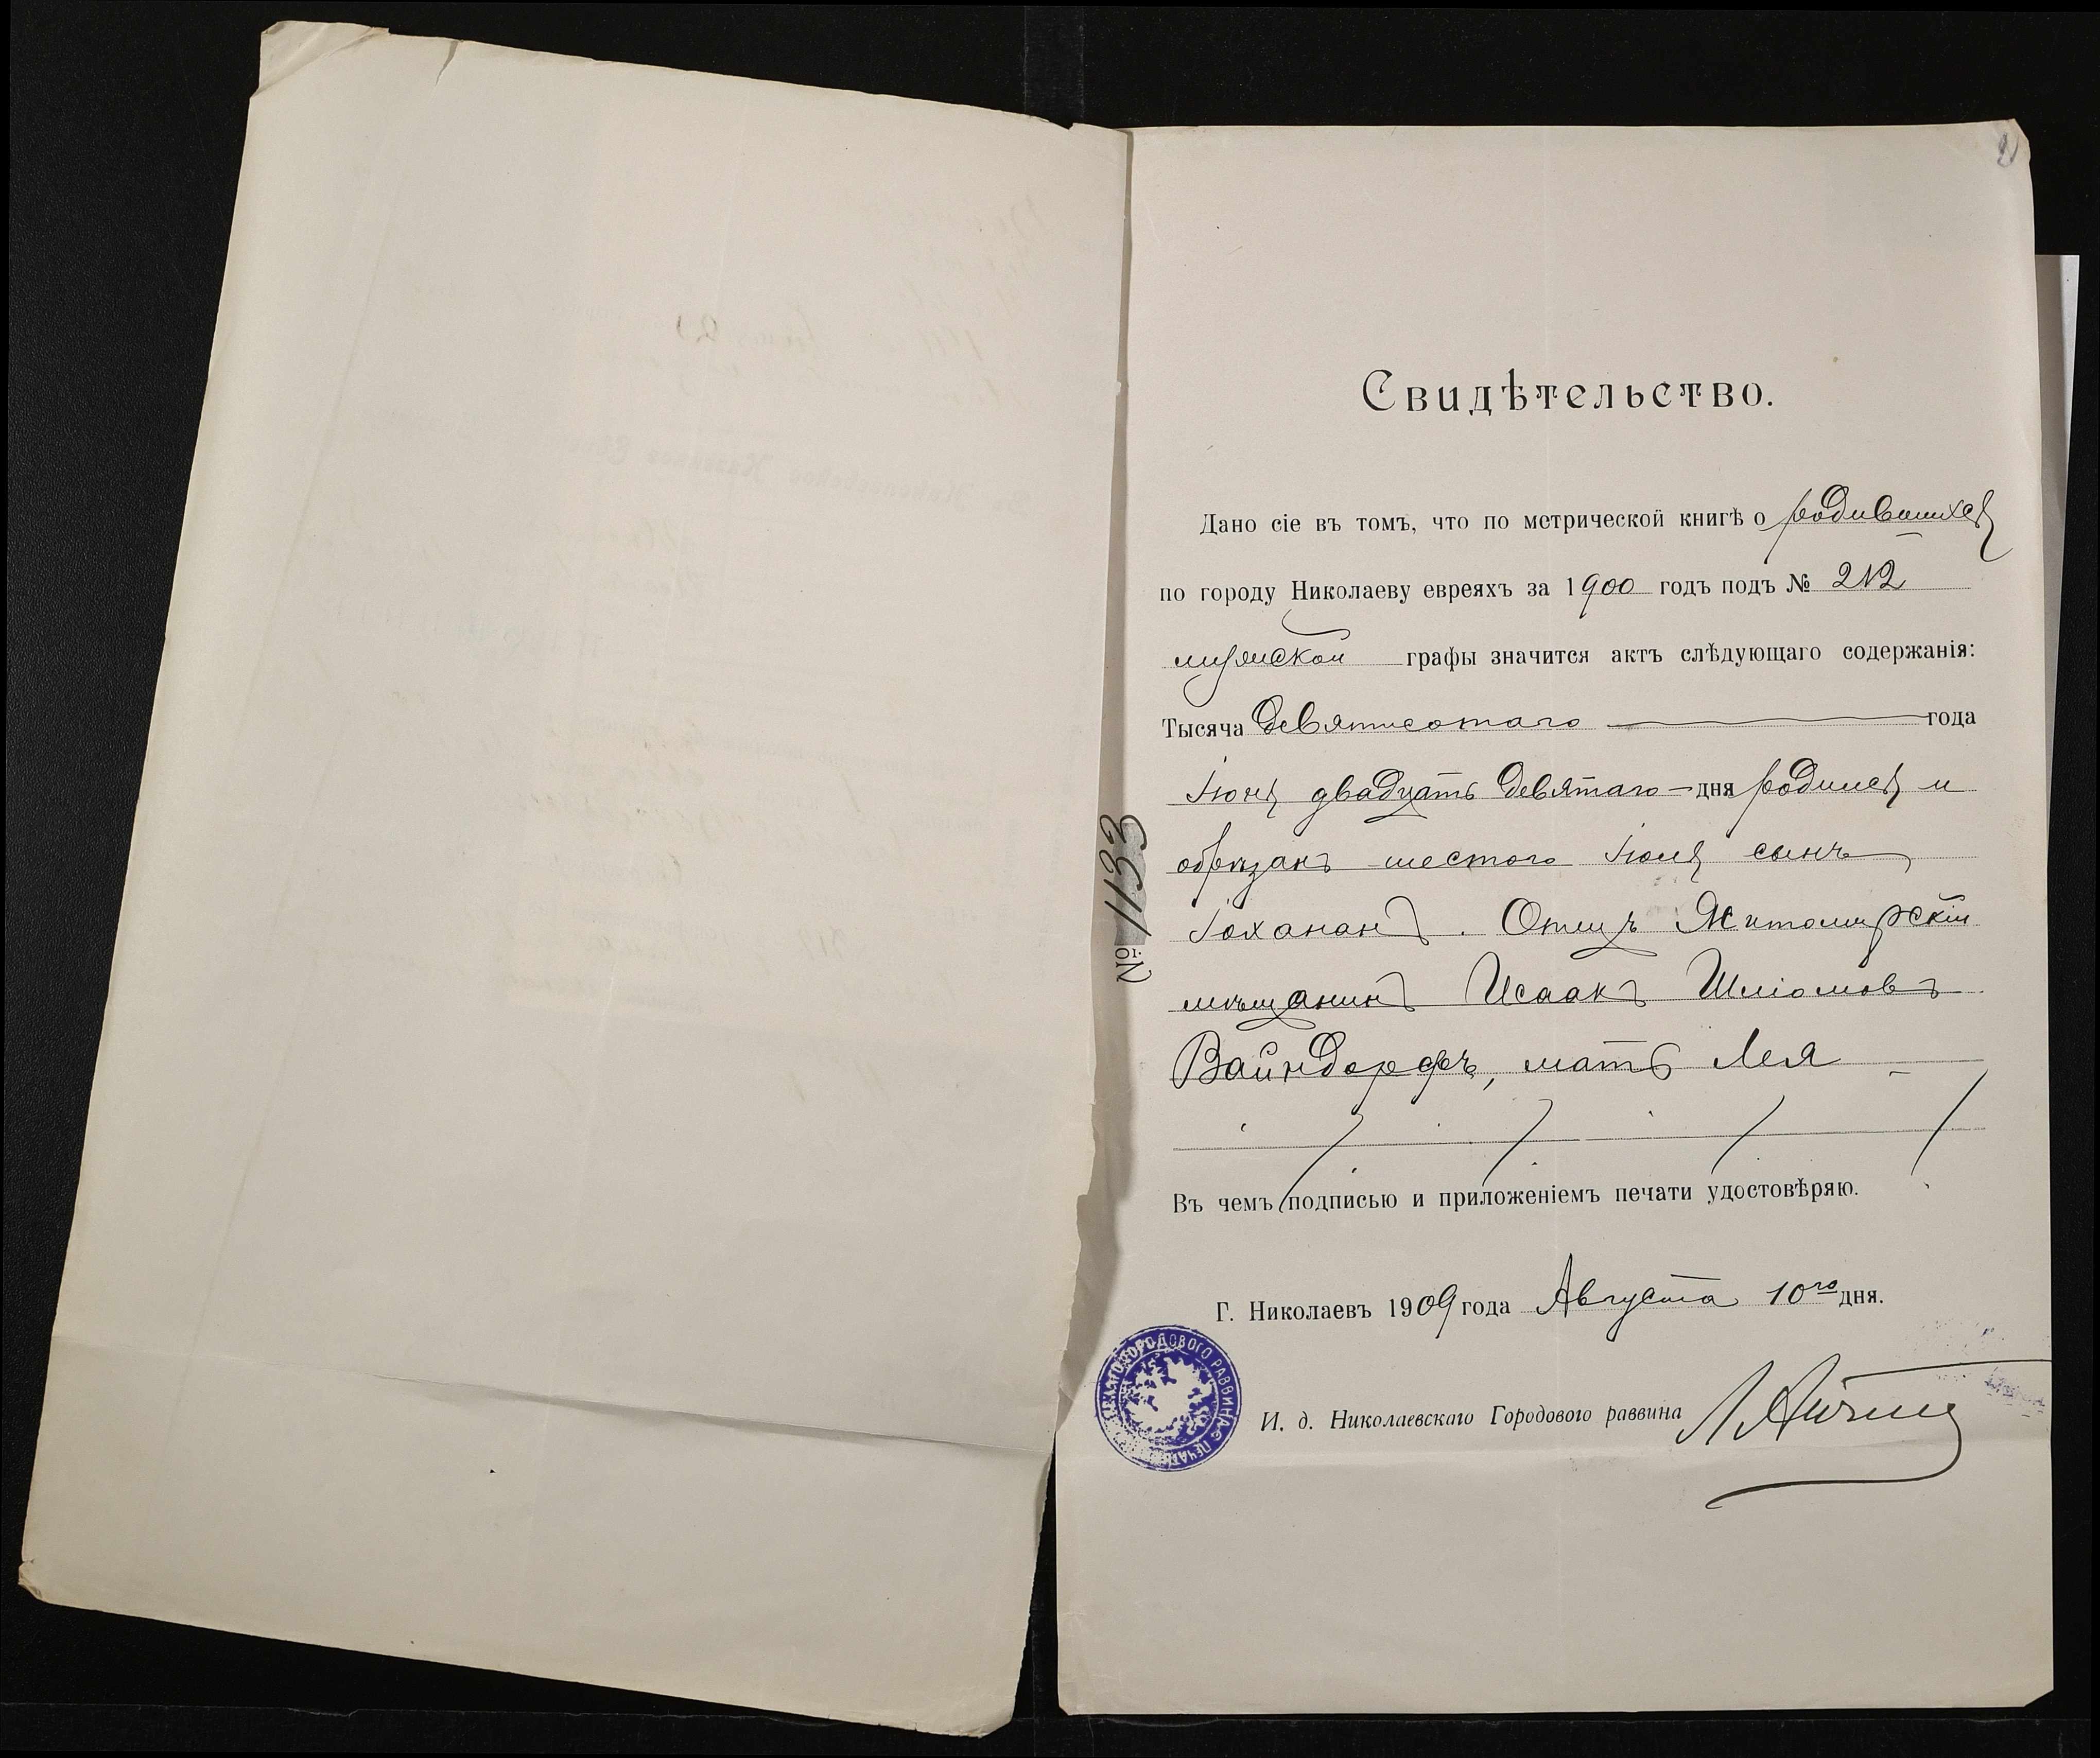 2
Свидѣтельство.
Дано сіе въ томъ, что по метрической книгѣ о родившихся
по городу Николаеву евреяхъ за 1900 годъ подъ № 212
мужской графы значится актъ слѣдующаго содержанія:
Тысяча девятисотаго года
Іюня двадцать девятаго дня родился и
обрѣзанъ шестого Іюля сынъ
Іохананъ. Отецъ Житомирскій
мѣщанинъ Исаакъ Шліомовъ
Вайндорфъ, мать Лея
Въ чемъ подписью и приложеніемъ печати удостовѣряю.
Г. Николаевъ 1909 года Августа 10го дня.
И. д. Николаевскаго Городового раввина
ГОРОДОВОГО РАВВИНА
№ 1133